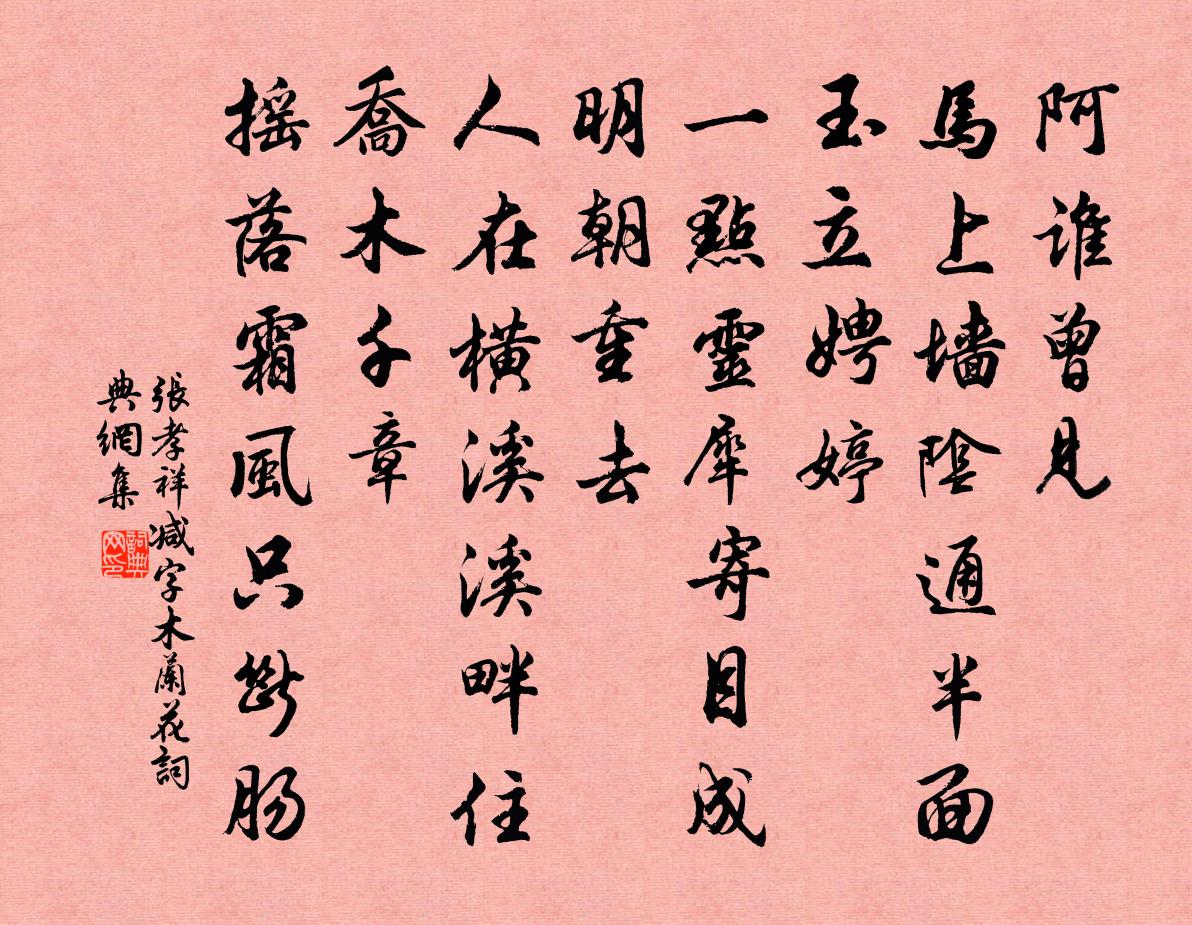 阿誰曾見
馬上墻陰通半面
玉立娉婷
一點靈犀寄目成
明朝重去
人在橫溪溪畔住
喬木千章
摇落霜風只斷腸
張孝祥减字木蘭花詞
典網集
詞典網印